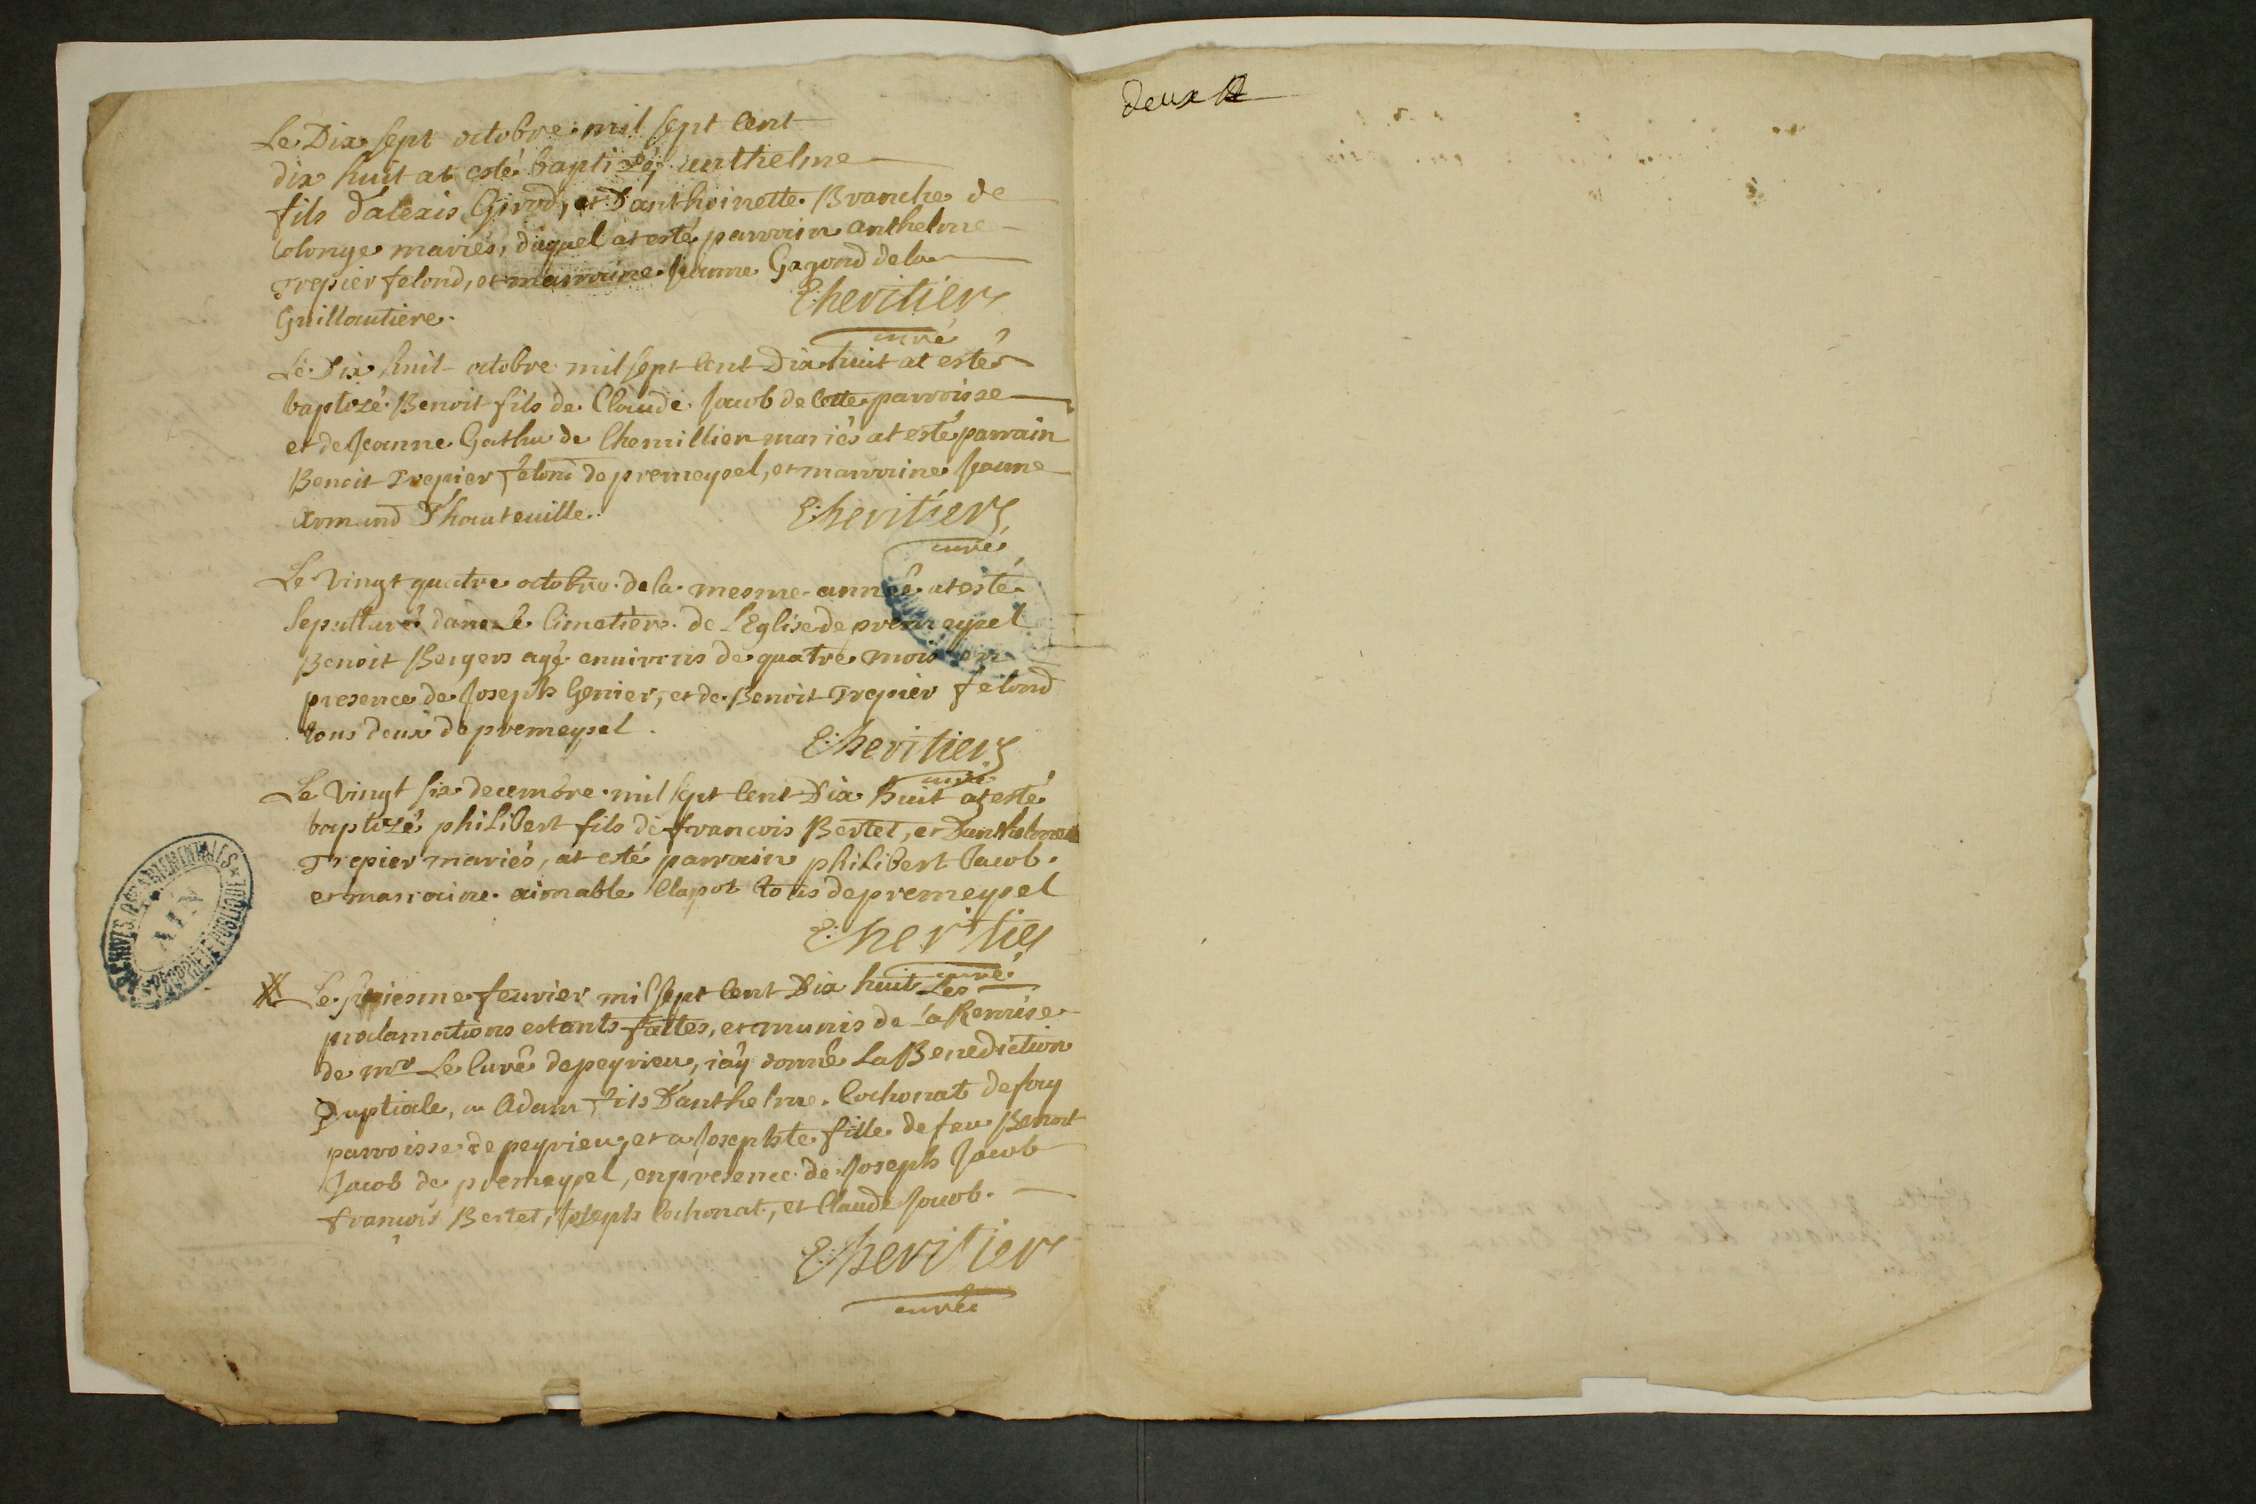 Le Dix sept octobre mil sept Cent
dix huit at esté baptizé anthelme
fils d'alexis Girod, et D'anthoinette Branche de
Colonge mariés, duquel at esté parrain anthelme
Trepier felond, et marraine Jeanne Gazond de la
Guilloutiere.
E: heritier
curé
Le Dix huit octobre mil sept Cent Dix huit at esté
baptizé Benoit fils de Claude Jacob de Cette parroisse
et de Jeanne Gathu de Chemillien mariés at esté parrain
Benoit Trepier felond de premeysel, et marraine Jeanne
armand D'hauteuille.
E: heritier
curé
Le Vingt quatre octobre de la mesme année at esté
Sepulturé dans Le Cimetiere de L'Eglise de premeysel
Benoit Bergers agé enuirons de quatre mois en
presence de Joseph Genier, et de Benoit Trepier felond
tous deux de premeysel.
E: heritier
curé
Le Vingt six decembre mil sept Cent Dix huit at esté
baptizé philibert fils de francois Bertet, et D'anthelmaz
Trepier mariés, at esté parrain philibert Jacob.
et marraine aimable Clapot tous de premeysel
E: heritier
curé
X Le feurier mil sept Cent Dix huit Les
proclamations estants faittes, et munis de La Remise
de mr Le Curé de peyrieu, i'ay donné La Benediction
Nuptiale, a Adam fils D'anthelme Cochonat de fay
parroisse de peyrieu, et a Josephte fille de feu Benoit
Jacob de premeysel, en presence de Joseph Jacob
francois Bertet, Joseph Cochonat, et Claude Jacob.
E: heritier
curé
ARCHIVES DÉPARTEMENTALES
AIN
deux